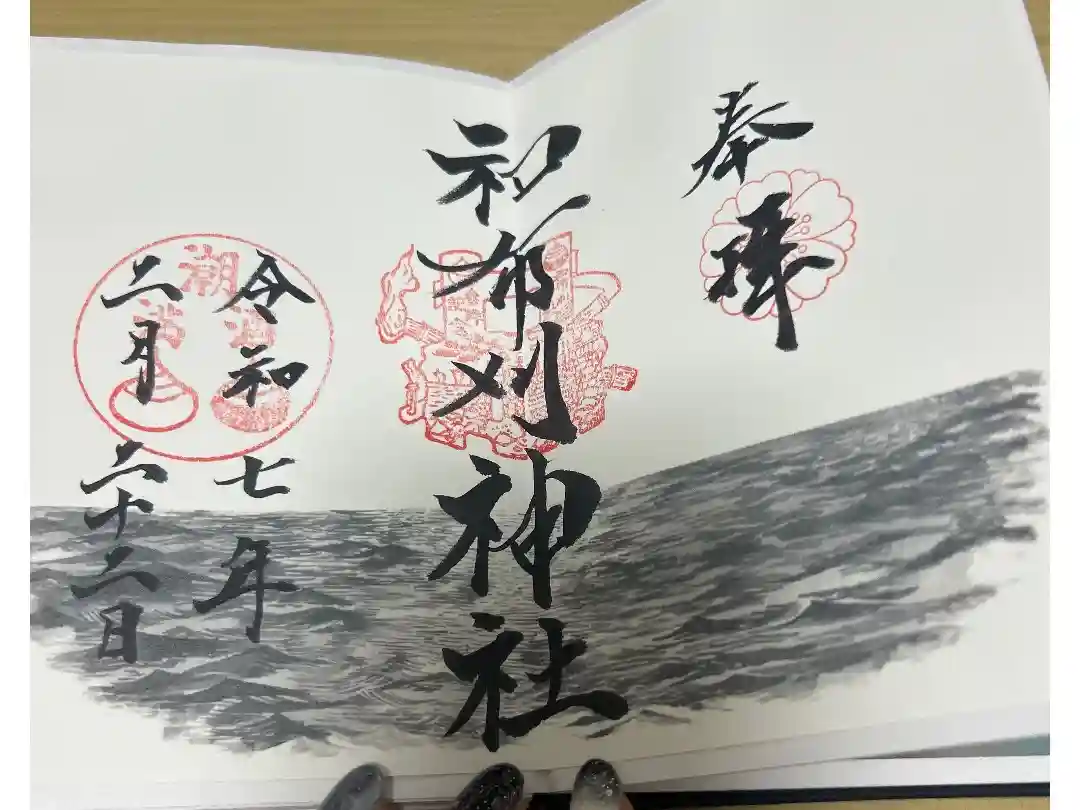 奉拝
和布刈神社
令和七年
二月二十二日
潮